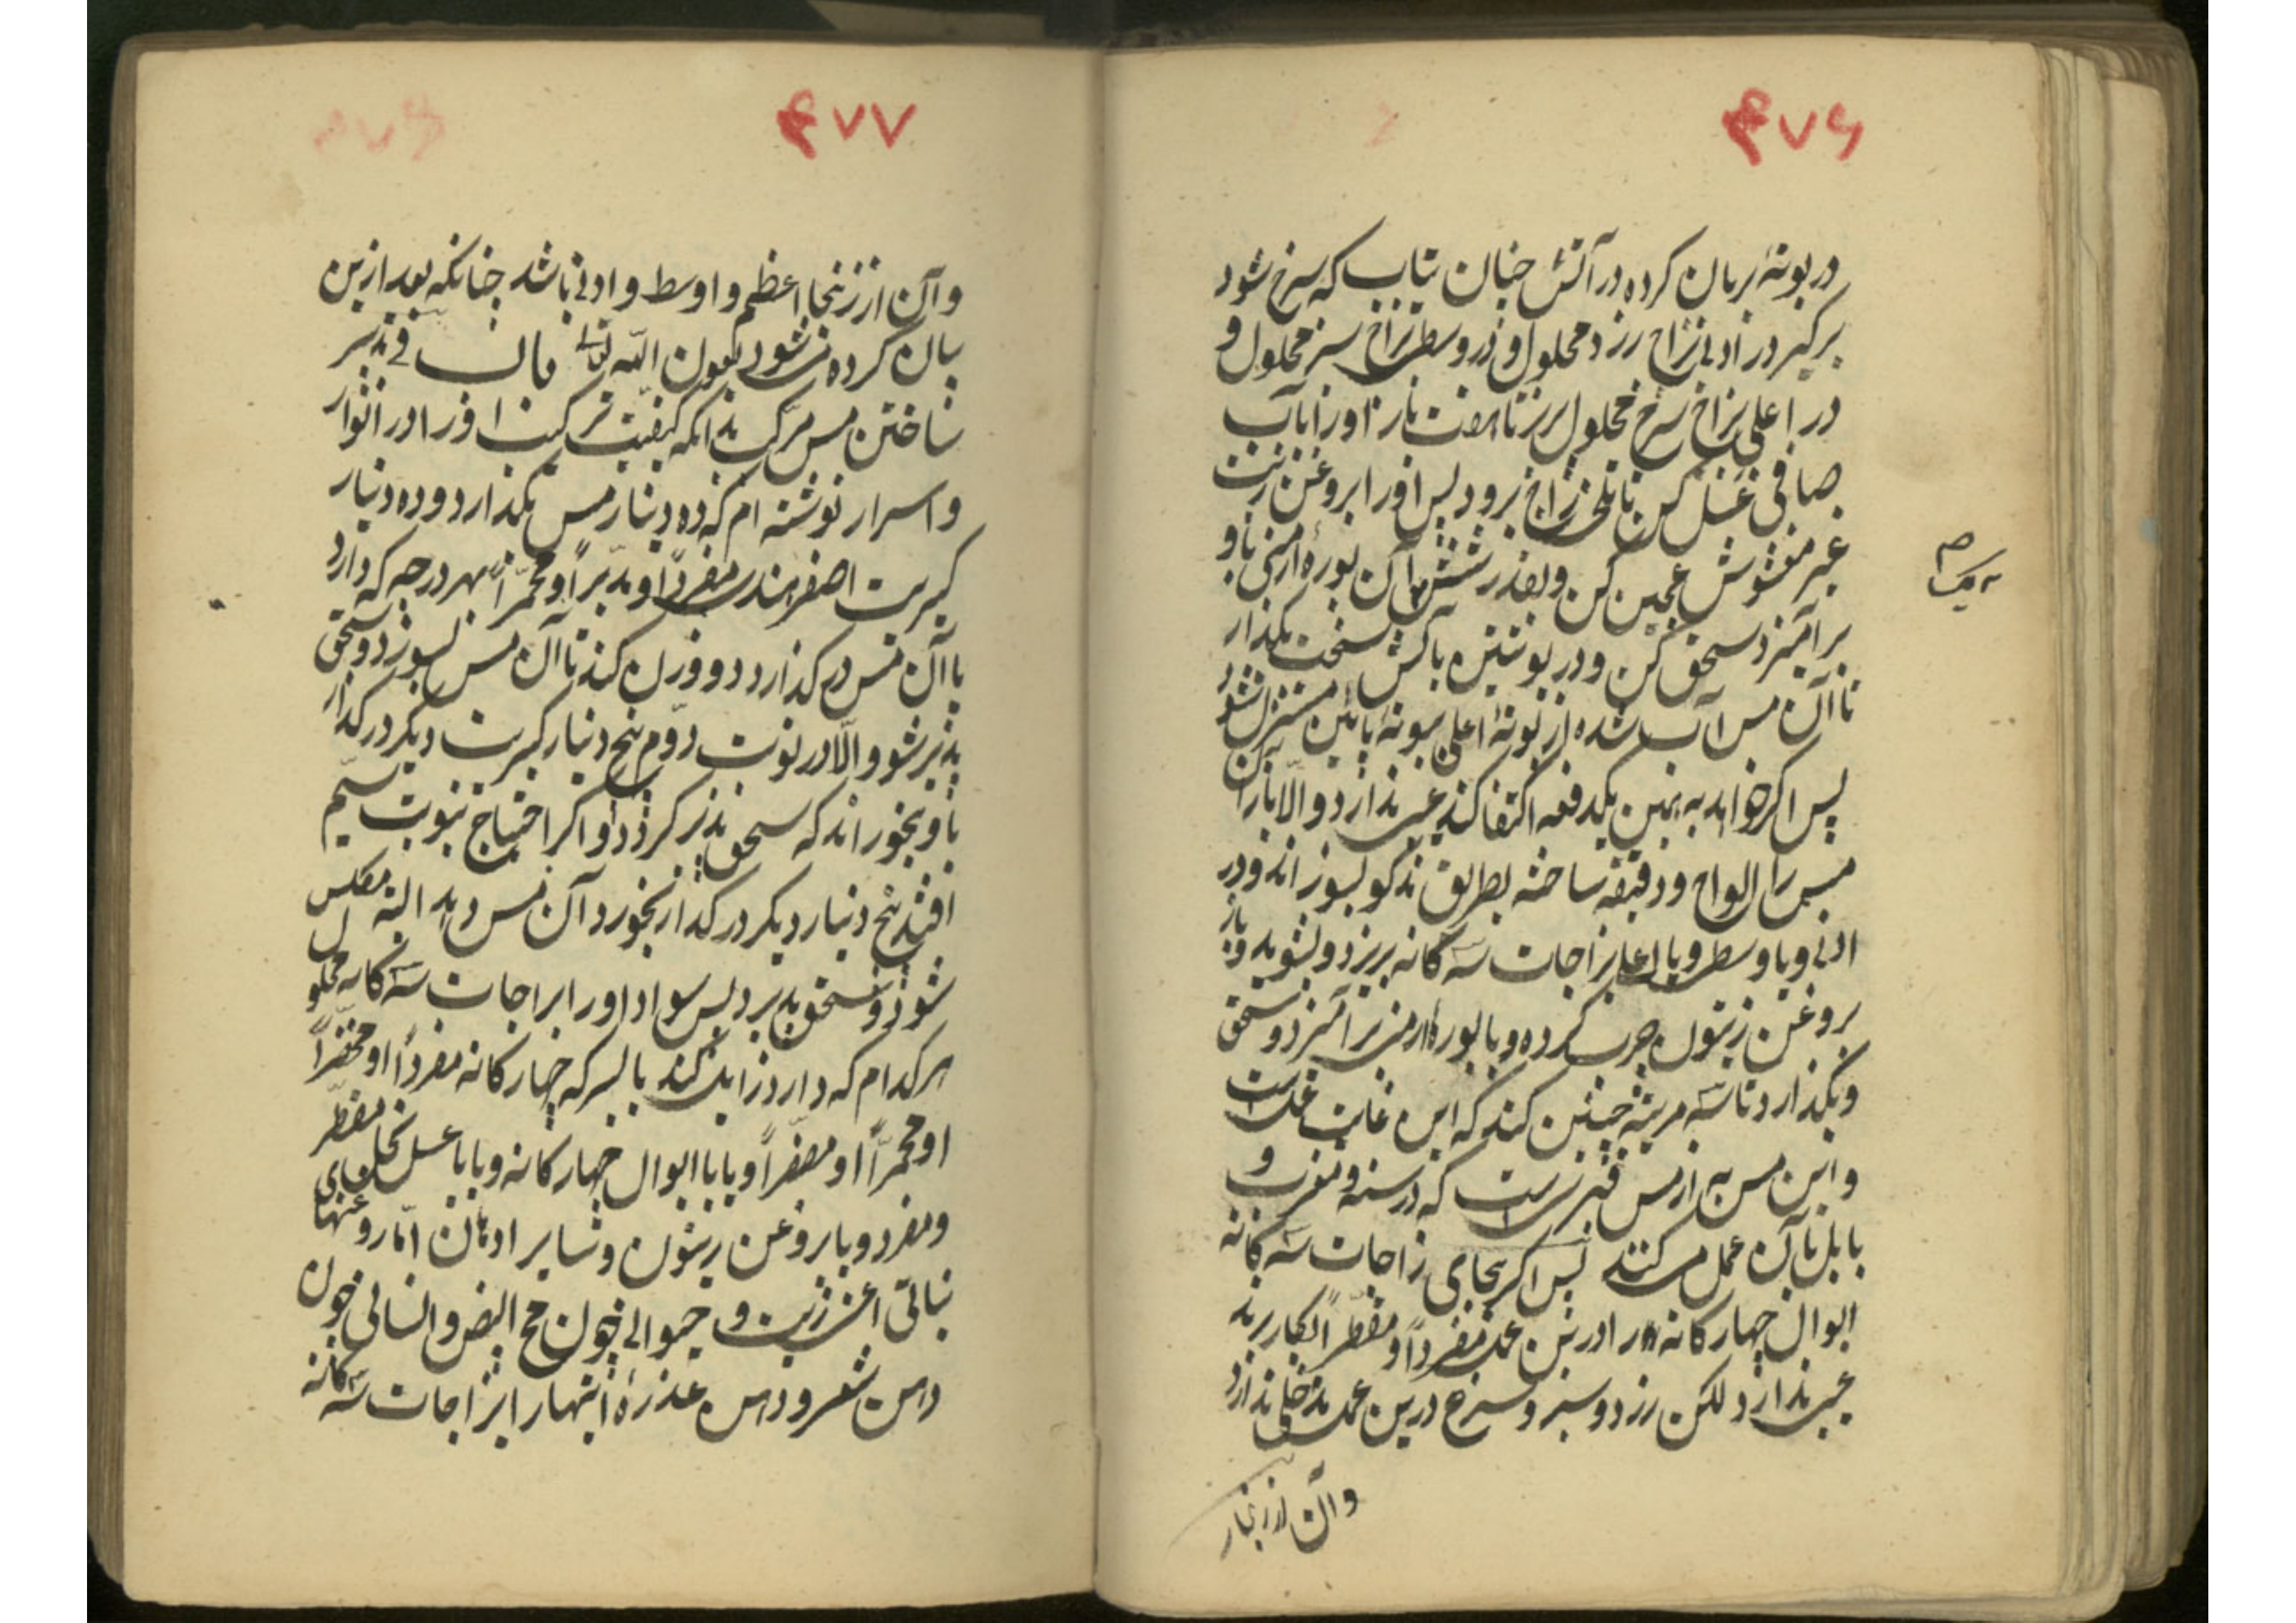 ۴۷۶
در بوتهٔ بریان کرده در آتش چنان بتاب که سرخ شود
برگیر در ادنی بزاج زرد محلول و در وسط بزاج سبز محلول و
در اعلی بزاج سرخ محلول بریز تا هفت بار و او را بآب
صافی غسل کن تا تلخی زاج برود پس او را بروغن زیت
غیر مغشوش عجین کن و بقدر شش آن بورهٔ ارمنی باو
برآمیز و سحق کن و در بوتتین بآتش سخت بگداز
تا آن مس آب شده از بوتهٔ اعلی ببوتهٔ پائین مستنزل شود
پس اگر خواهد به همین یکدفعه اکتفا کند عیب ندارد والا باز آن
مس را الواح و دقیقه ساخته بطریق مذکور بسوزاند و در
ادنی و یا وسط و یا اعلی بزاجات سه کانه بریزد و بشوید و باز
بروغن زیتون چرب کرده و با بورهٔ ارمنی برآمیزد و سحق
و بگدازد تا سه مرتبه چنین کند که این غایت عمل است
و این مس به از مس قبرسی است که در سنه و مغرب و
بابل بآن عمل میکنند پس اگر بجای زاجات سه کانه
ابوال چهار کانه را درین عمل مفردا و مقطرا بکار برند
عیب ندارد لکن زرد و سبز و سرخ درین عمل مدخلی ندارد
وآن از زنجار
۴۷۷
وآن از زنجار اعظم و اوسط و ادنی باشد چنانکه بعد ازین
بیان کرده شود بعون الله تعالی باب فی تدبیر
ساختن مس مرکب بدانکه کیفیت ترکیب او را در انوار
و اسرار نوشته ام که ده دینار مس بگدازد و ده دینار
کبریت اصفر هندی مفردا و مدبرا و محمرا بهر درجه که دارد
با آن مس در گدازد و وزان کند تا آن مس بسوزد و سحق
پذیر شود والا در نوبت دوم پنج دینار کبریت دیگر در گداز
باو بخوراند که سحق پذیر گردد و اگر احتیاج بنوبت سیم
افتد پنج دینار دیگر در گداز بخورد آن مس دهد البته مکلس
شود و سحق پذیرد پس سواد او را بزاجات سه کانه محلول
هر کدام که دارد زایل کند یا بسرکه چهار کانه مفردا او مخضرا
او محمرا او مصفرا و یا با ابوال چهار کانه و یا با عسل نحل مقطر
و مفرد و یا بروغن زیتون و سایر ادهان اما روغنهای
نباتی اعنی زیت و حیوانی چون مح البیض و انسانی چون
دهن شعر و دهن عذره اینها را بزاجات سه کانه